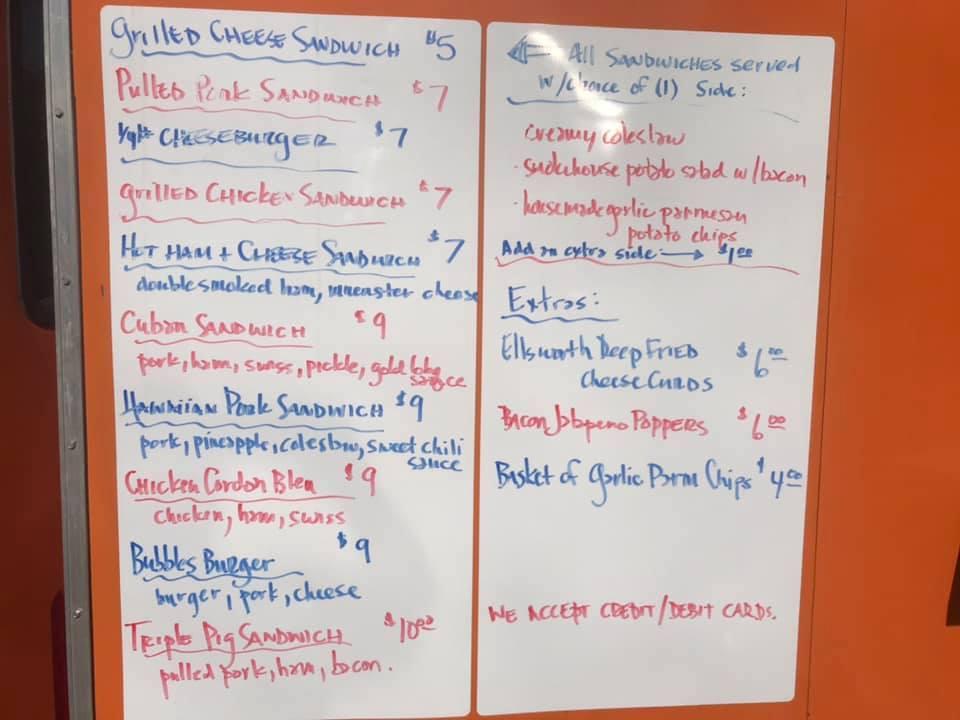 Grilled Cheese Sandwich $5
Pulled Pork Sandwich $7
1/4 lb Cheeseburger $7
Grilled Chicken Sandwich $7
Hot Ham + Cheese Sandwich $7
double smoked ham, muenster cheese
Cuban Sandwich $9
pork, ham, swiss, pickle, gold
sauce
Hawaiian Pork Sandwich $9
pork, pineapple, coleslaw, sweet chili
sauce
Chicken Cordon Bleu $9
chicken, ham, swiss
Bubbles Burger $9
burger, pork, cheese
Triple Pig Sandwich $10.00
pulled pork, ham, bacon.
All Sandwiches served
w/choice of (1) Side:
creamy coleslaw
· smokehouse potato salad w/bacon
· housemade garlic parmesan
potato chips
Add an extra side → $1.00
Extras:
Ellsworth Deep Fried $6.00
Cheese Curds
Bacon Jalapeno Poppers $6.00
Basket of Garlic Parm Chips $4.00
WE ACCEPT CREDIT/DEBIT CARDS.